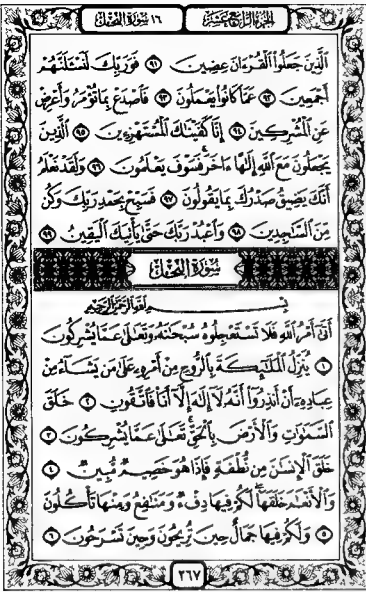 الجزء الرابع عشر
١٦ سورة النحل
الَّذِينَ جَعَلُوا الْقُرْءَانَ عِضِينَ ٩١ فَوَرَبِّكَ لَنَسْـَٔلَنَّهُمْ
أَجْمَعِينَ ٩٢ عَمَّا كَانُوا يَعْمَلُونَ ٩٣ فَاصْدَعْ بِمَا تُؤْمَرُ وَأَعْرِضْ
عَنِ الْمُشْرِكِينَ ٩٤ إِنَّا كَفَيْنَاكَ الْمُسْتَهْزِءِينَ ٩٥ الَّذِينَ
يَجْعَلُونَ مَعَ اللَّهِ إِلَٰهًا ءَاخَرَ فَسَوْفَ يَعْلَمُونَ ٩٦ وَلَقَدْ نَعْلَمُ
أَنَّكَ يَضِيقُ صَدْرُكَ بِمَا يَقُولُونَ ٩٧ فَسَبِّحْ بِحَمْدِ رَبِّكَ وَكُن
مِّنَ السَّاجِدِينَ ٩٨ وَاعْبُدْ رَبَّكَ حَتَّىٰ يَأْتِيَكَ الْيَقِينُ ٩٩
سُورَةُ النَّحْلِ
بِسْمِ اللَّهِ الرَّحْمَٰنِ الرَّحِيمِ
أَتَىٰ أَمْرُ اللَّهِ فَلَا تَسْتَعْجِلُوهُ سُبْحَٰنَهُ وَتَعَٰلَىٰ عَمَّا يُشْرِكُونَ
١ يُنَزِّلُ الْمَلَٰٓئِكَةَ بِالرُّوحِ مِنْ أَمْرِهِ عَلَىٰ مَن يَشَآءُ مِنْ
عِبَادِهِ أَنْ أَنذِرُوا أَنَّهُ لَآ إِلَٰهَ إِلَّآ أَنَا فَاتَّقُونِ ٢ خَلَقَ
السَّمَٰوَٰتِ وَالْأَرْضَ بِالْحَقِّ تَعَٰلَىٰ عَمَّا يُشْرِكُونَ ٣
خَلَقَ الْإِنسَٰنَ مِن نُّطْفَةٍ فَإِذَا هُوَ خَصِيمٌ مُّبِينٌ ٤
وَالْأَنْعَٰمَ خَلَقَهَا لَكُمْ فِيهَا دِفْءٌ وَمَنَٰفِعُ وَمِنْهَا تَأْكُلُونَ
٥ وَلَكُمْ فِيهَا جَمَالٌ حِينَ تُرِيحُونَ وَحِينَ تَسْرَحُونَ ٦
٢٦٧